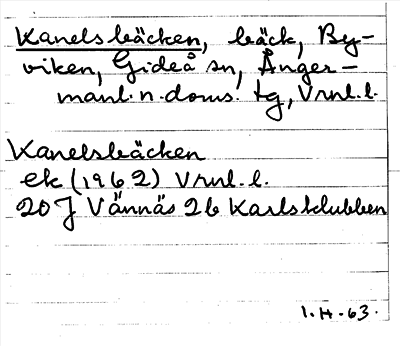 Kanelsbäcken, bäck, By-
viken, Gideå sn, Ånger-
manl. n. doms. tg, Vrnl. l.
Kanelsbäcken
ek (1962) Vrnl. l.
20 J Vännäs 2b Karlsklubben
1.H.63.